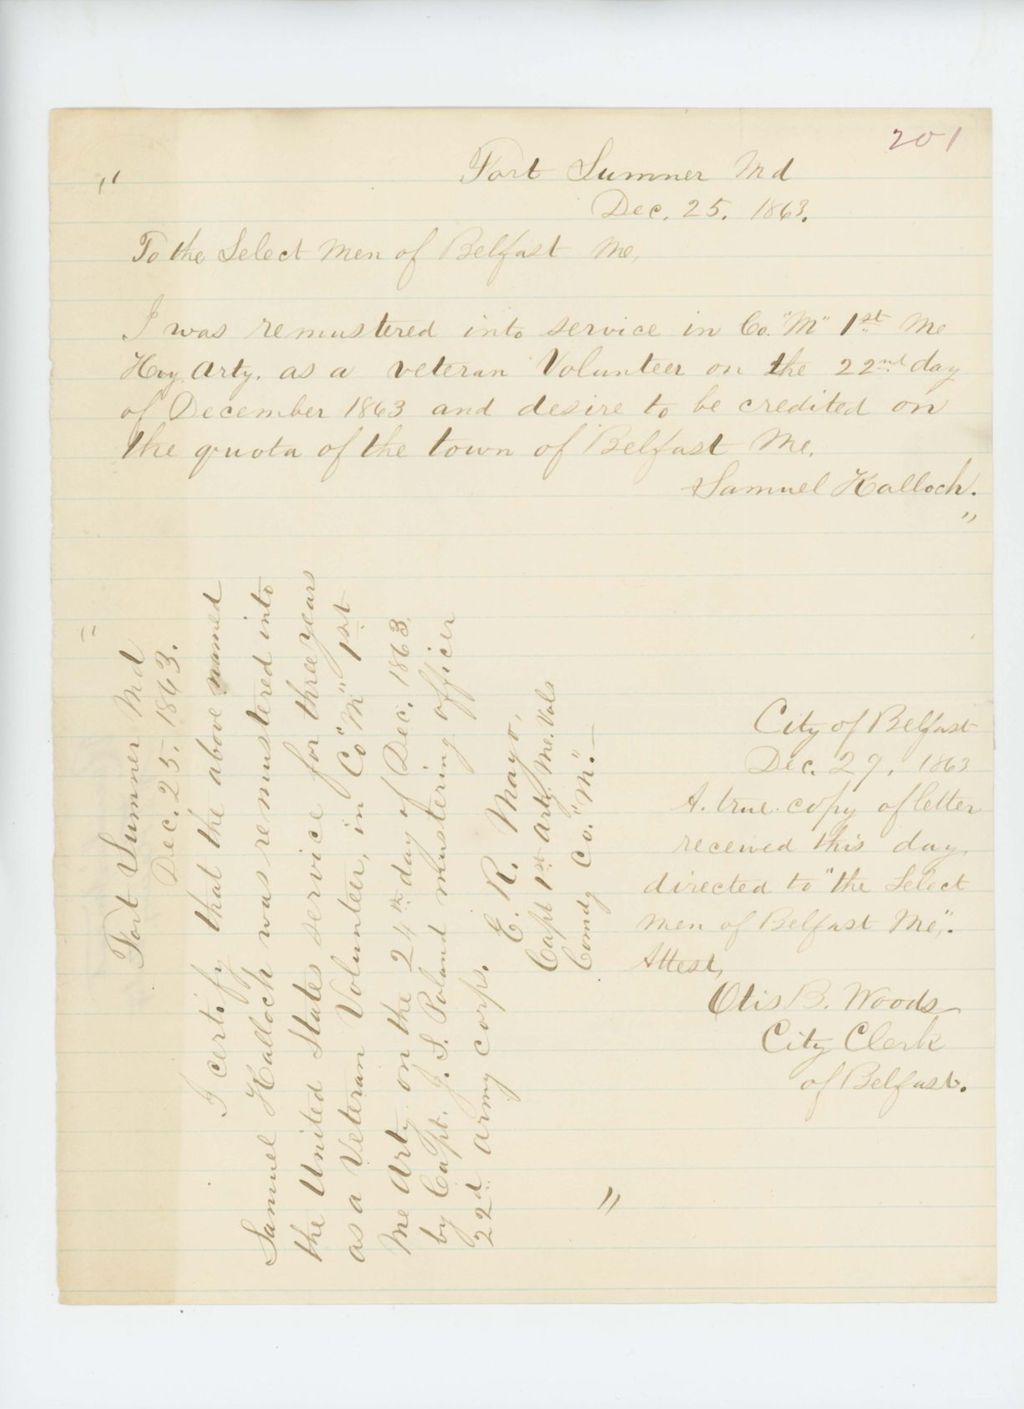 201
" Fort Sumner Md
Dec. 25. 1863.
To the Select Men of Belfast Me,
I was remustered into service in Co. "M" 1st Me
Hvy. Arty. as a veteran Volunteer on the 22nd day
of December 1863 and desire to be credited on
the quota of the town of Belfast Me.
Samuel Kalloch.
"
" Fort Sumner Md
Dec. 25. 1863.
I certify that the above named
Samuel Kalloch was remustered into
the United States service for three years
as a Veteran Volunteer, in Co "M" 1st
Me Arty. on the 24th day of Dec. 1863
by Capt. J. S. Poland mustering officer
22d Army Corps.
E. R. Mayo,
Capt 1st Arty. Me. Vols
Comdg Co. "M."
"
City of Belfast
Dec. 29, 1863
A. true copy of letter
received this day
directed to "the Select
men of Belfast Me,".
Attest,
Otis B. Woods
City Clerk
of Belfast.